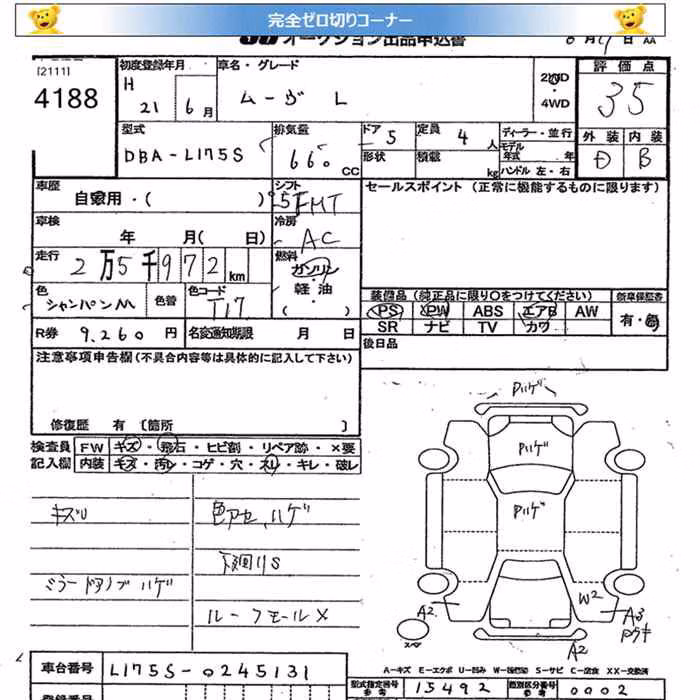 完全ゼロ切りコーナー
オークション出品申込書
[2111]
4188
初度登録年月
H 21 6月
車名・グレード
ムーヴ L
2WD
・
4WD
評価点
35
型式
DBA-L175S
排気量
660 CC
ドア 5
定員 4 人
形状
積載 kg
ディーラー・並行
モデル年式 年
ハンドル 左・右
外装 内装
D B
車歴
自家用・( )
シフト
5FMT
セールスポイント (正常に機能するものに限ります)
車検
年 月( 日)
冷房
AC
走行
2万5千972km
燃料
ガソリン
軽油
( )
色
シャンパンM
色替
色コード
T17
装備品 (純正品に限り○をつけてください)
新車保証書
PS PW ABS エアB AW
SR ナビ TV カワ
有・無
R券 9,260円
名変通知期限 月 日
後日品
注意事項申告欄 (不具合内容等は具体的に記入して下さい)
修復歴 有 [箇所 ]
検査員記入欄
FW キズ・飛石・ヒビ割・リペア跡・×要
内装 キズ・汚レ・コゲ・穴・スレ・キレ・破レ
キズU
色アセ、ハゲ
下廻りS
ミラードアノブハゲ
ルーフモールX
Pハゲ
Pハゲ
Pハゲ
A2
W2
A3
A2
スペア
車台番号 L175S-0245131
A-キズ E-エクボ U-凹み W-補修跡 S-サビ C-腐食 XX-交換済
型式指定番号 参考 15492
類別区分番号 参考 0002
登録番号